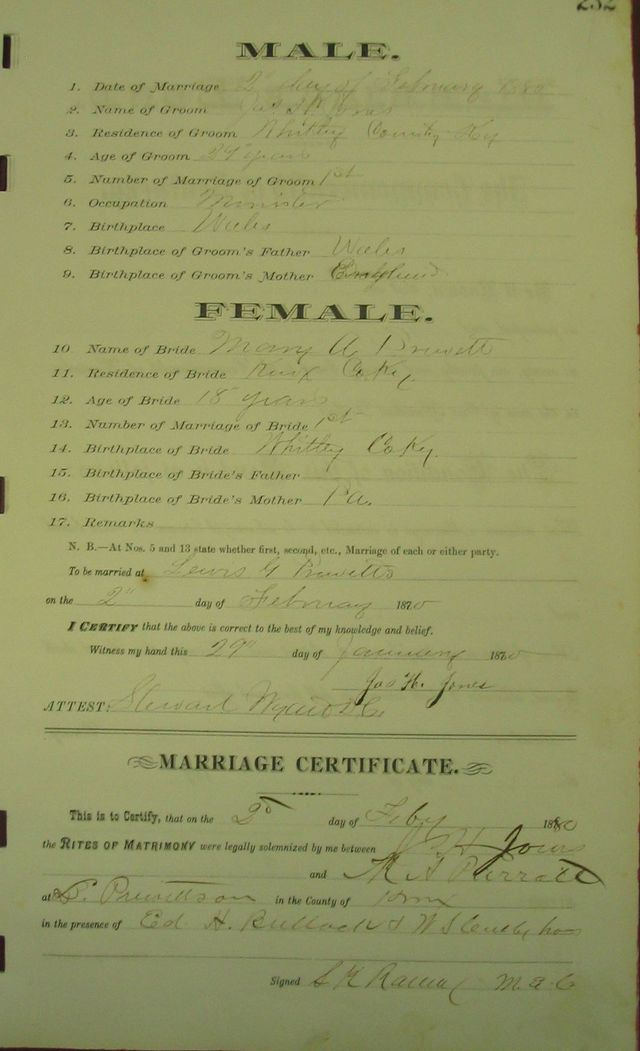 232
MALE.
1. Date of Marriage 2" day of February 1880
2. Name of Groom Jas H Jones
3. Residence of Groom Whitley County Ky
4. Age of Groom years
5. Number of Marriage of Groom 1st
6. Occupation Minister
7. Birthplace Wales
8. Birthplace of Groom's Father Wales
9. Birthplace of Groom's Mother England
FEMALE.
10. Name of Bride Mary A Pruvett
11. Residence of Bride Knox Co. Ky.
12. Age of Bride 18 years
13. Number of Marriage of Bride 1st
14. Birthplace of Bride Whitley Co. Ky.
15. Birthplace of Bride's Father
16. Birthplace of Bride's Mother Pa.
17. Remarks
N. B.—At Nos. 5 and 13 state whether first, second, etc., Marriage of each or either party.
To be married at Lewis G Pruvetts
on the 2" day of February 1880
I CERTIFY that the above is correct to the best of my knowledge and belief.
Witness my hand this 29" day of January 1880
Jas H. Jones
ATTEST: Steward
MARRIAGE CERTIFICATE.
This is to Certify, that on the 2d day of Feby 1880
the RITES OF MATRIMONY were legally solemnized by me between J H Jones
and M A
at in the County of Knox
in the presence of Ed. H. Bullock & W S
Signed S K